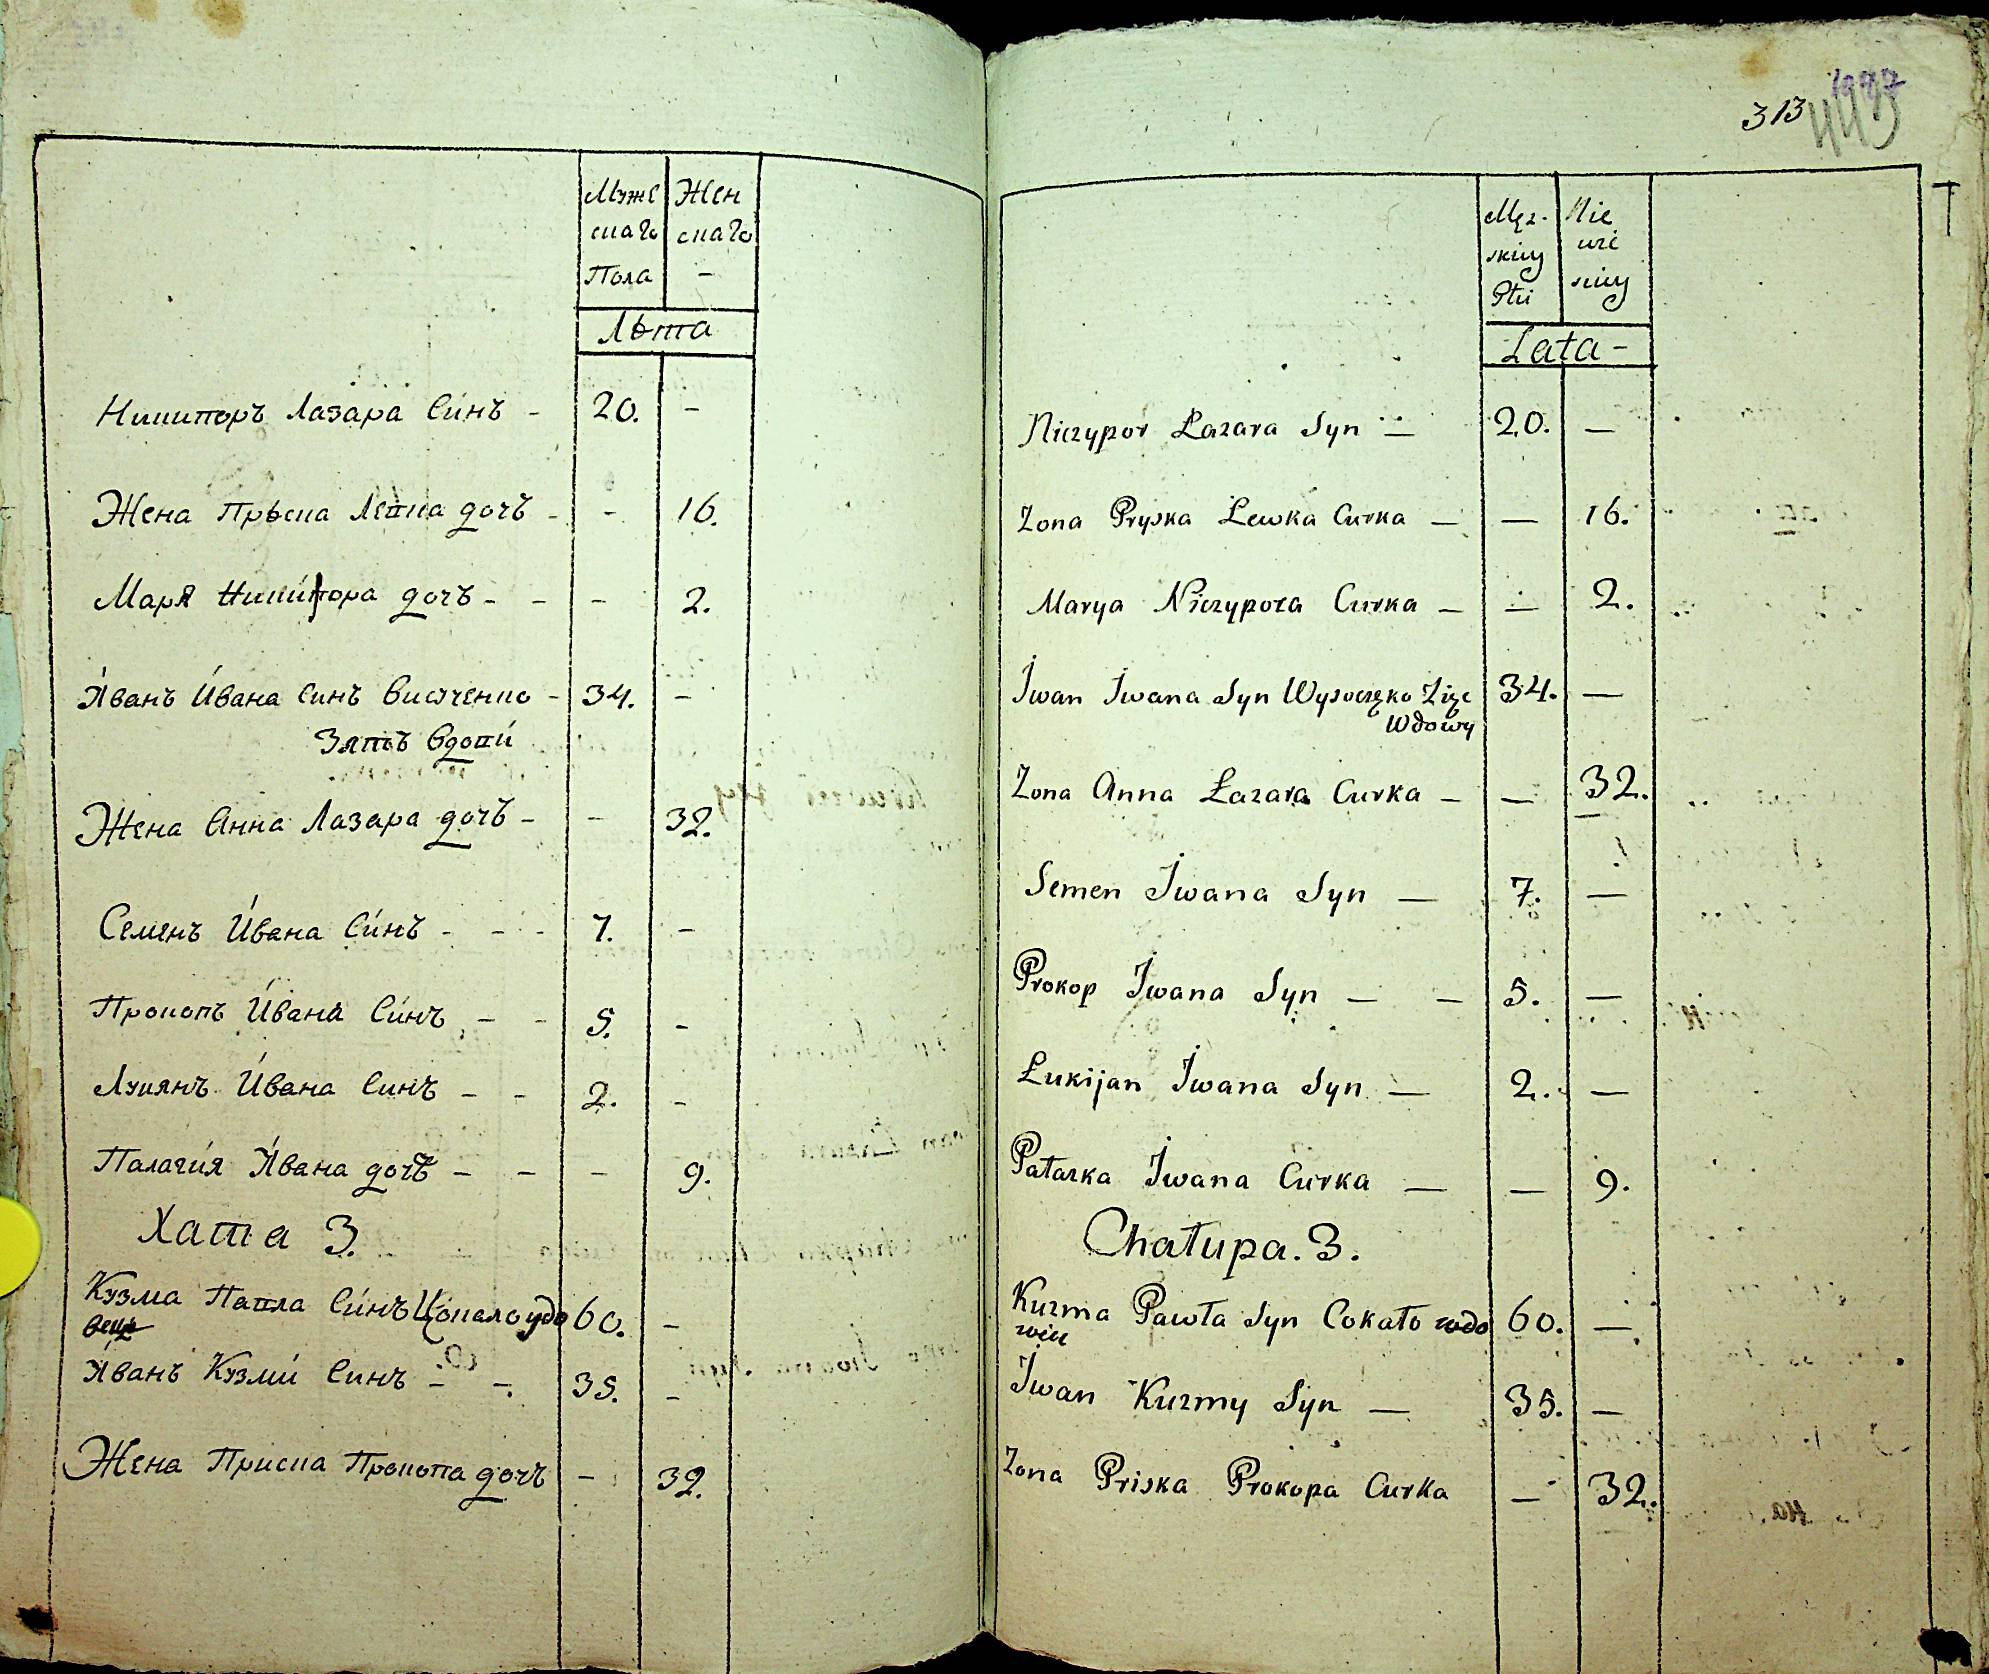 Муже Жен
скаго скаго
Пола -
Лѣта
Ничипоръ Лазара Синъ - 20. -
Жена Прѣска Левка дочъ - - 16.
Маря Ничипора дочъ - - - 2.
Иванъ Ивана Синъ Височенко - 34. -
Зятъ Вдови
Жена Анна Лазара дочъ - - 32.
Семенъ Ивана Синъ - - - 7. -
Прокопъ Ивана Синъ - - 5. -
Лукянъ Ивана Синъ - - 2. -
Палагия Ивана дочъ - - - 9.
Хата 3.
Кузма Павла Синъ Цокало удо 60. -
вецъ
Иванъ Кузми Синъ - - 35. -
Жена Приска Прокопа дочъ - 32.
313 443
Męz- Nie
skiey wie
Płci sciey
Lata -
Niczypor Łazara Syn — 20. —
Zona Pryska Lewka Curka — — 16.
Marya Niczypora Curka — — 2.
Iwan Iwana Syn Wysoczęko Zięc 34. —
Wdowy
Zona Anna Łazara Curka — — 32.
Semen Iwana Syn — 7. —
Prokop Iwana Syn — — 5. —
Łukijan Iwana Syn — 2. —
Pałazka Iwana Curka — — 9.
Chałupa. 3.
Kuzma Pawła Syn Cokało wdo 60. —
wiec
Iwan Kuzmy Syn — 35. —
Zona Priska Prokopa Curka — 32.